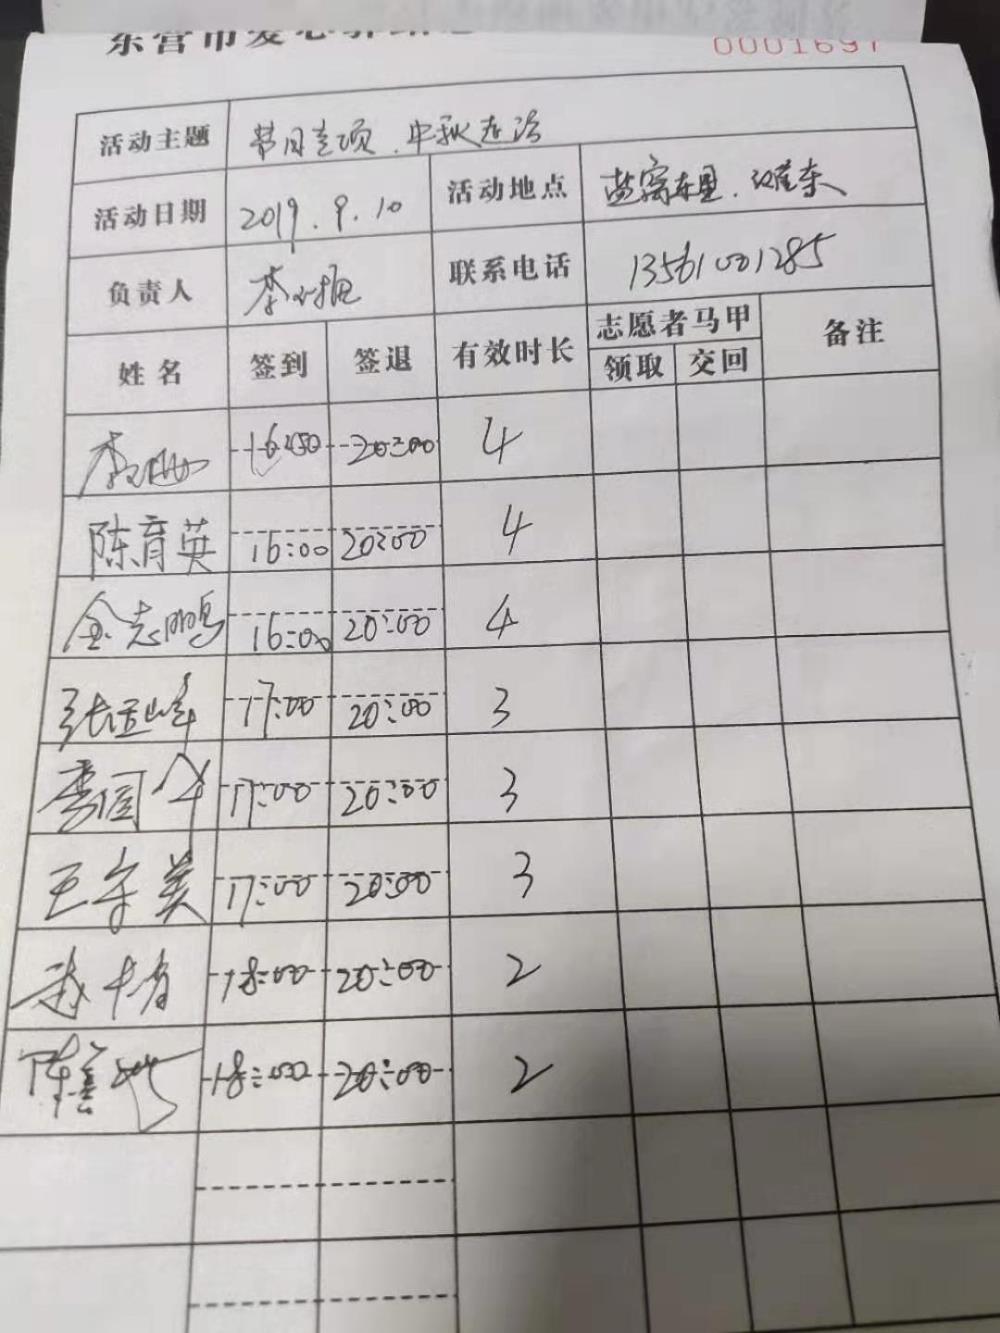 0001697
活动主题 节日专项.中秋走访
活动日期 2019.9.10 活动地点
负责人 李 联系电话 13561001285
姓名 签到 签退 有效时长 志愿者马甲 备注
领取 交回
李 16:00 20:00 4
陈育英 16:00 20:00 4
金志鹏 16:00 20:00 4
张玉峰 17:00 20:00 3
李国华 17:00 20:00 3
王守美 17:00 20:00 3
18:00 20:00 2
陈 18:00 20:00 2